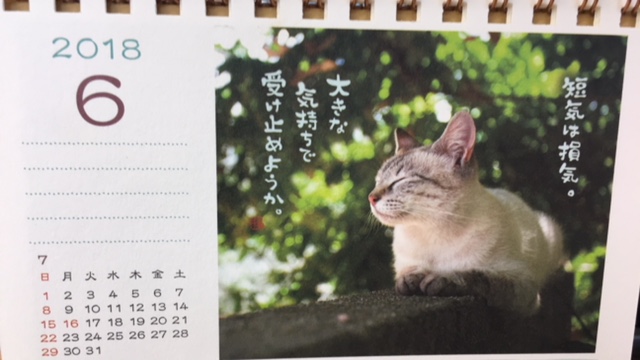 2018
6
7
日 月 火 水 木 金 土
1 2 3 4 5 6 7
8 9 10 11 12 13 14
15 16 17 18 19 20 21
22 23 24 25 26 27 28
29 30 31
短気は損気。
大きな
気持ちで
受け止めようか。